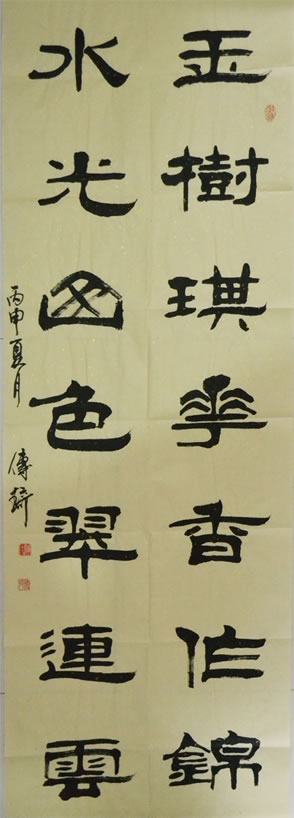 玉樹琪花香作錦
水光山色翠連雲
丙申夏月
傳錡